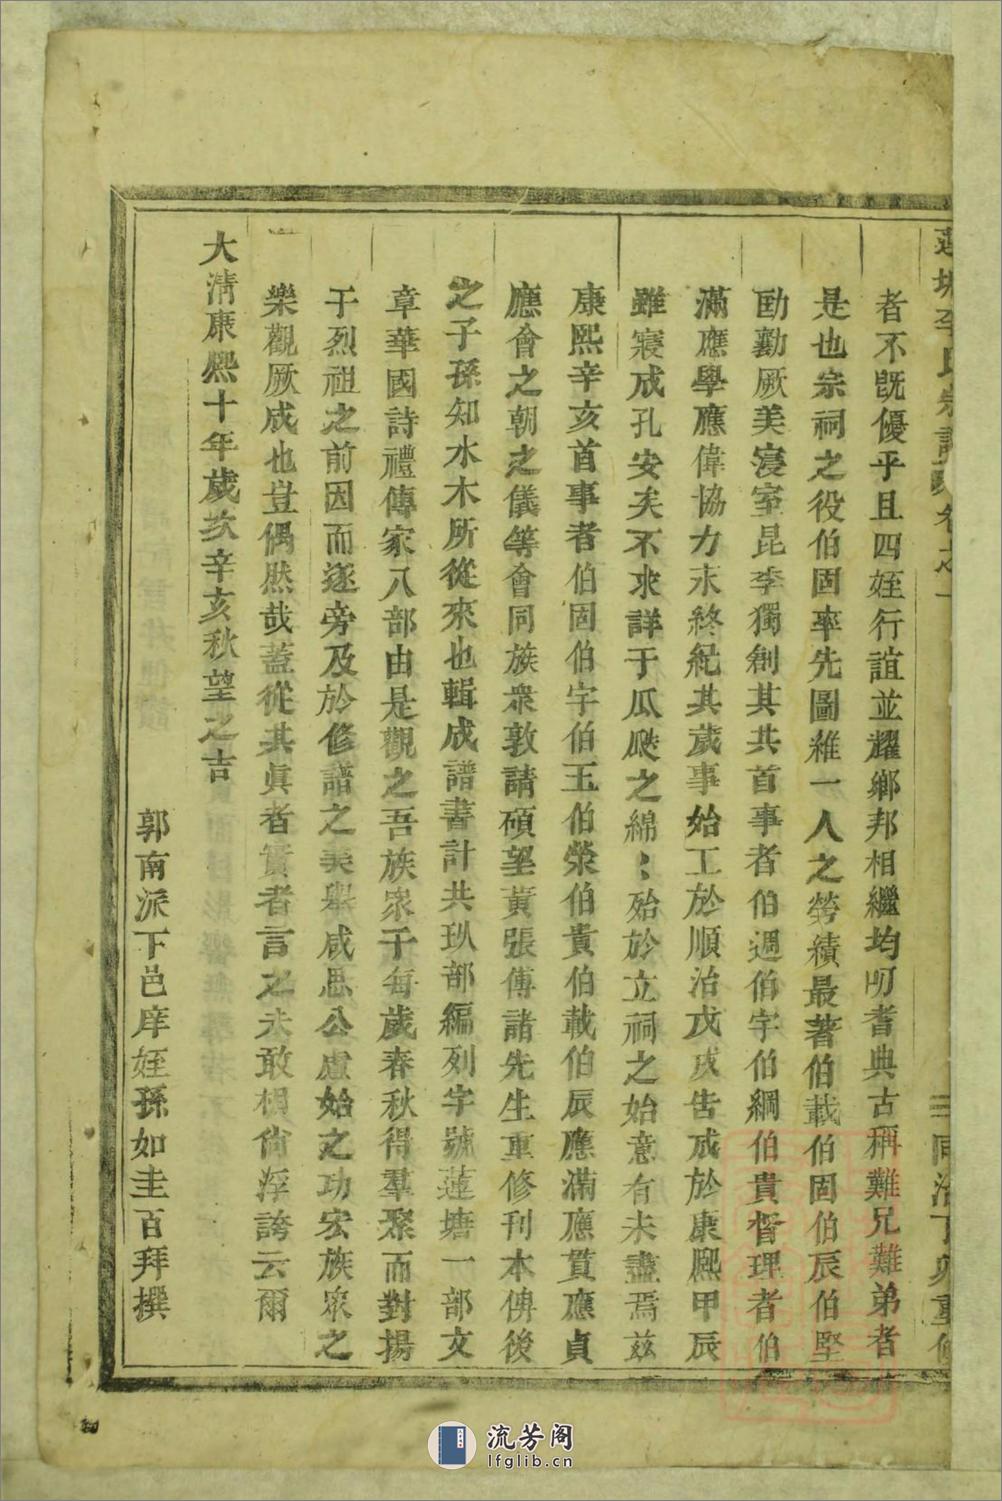 蓮塘李氏宗譜 卷之一 三 同治丁卯重修
者不旣優乎且四姪行誼並耀鄉邦相繼均叨耆典古稱難兄難弟者
是也宗祠之役伯固率先圖維一人之勞績最著伯載伯固伯辰伯堅
勷厥美寢室昆季獨創其共首事者伯週伯字伯綱伯貴督理者伯
滿應學應偉協力末終紀其歲事始工於順治戊戌告成於康熙甲辰
雖寢成孔安矣不求詳于瓜瓞之綿〻殆於立祠之始意有未盡焉茲
康熙辛亥首事者伯固伯字伯玉伯榮伯貴伯載伯辰應滿應貫應貞
應會之朝之儀等會同族衆敦請碩望黃張傅諸先生重修刊本俾後
之子孫知水木所從來也輯成譜書計共玖部編列字號蓮塘一部文
章華國詩禮傳家八部由是觀之吾族衆于每歲春秋得羣聚而對揚
于烈祖之前因而逐旁及於修譜之美舉咸思公慮始之功宏族衆之
樂觀厥成也豈偶然哉蓋從其眞者實者言之未敢相尙浮誇云爾
大淸康熙十年歲次辛亥秋望之吉
郭南派下邑庠姪孫如圭百拜撰
流芳阁
lfglib.cn